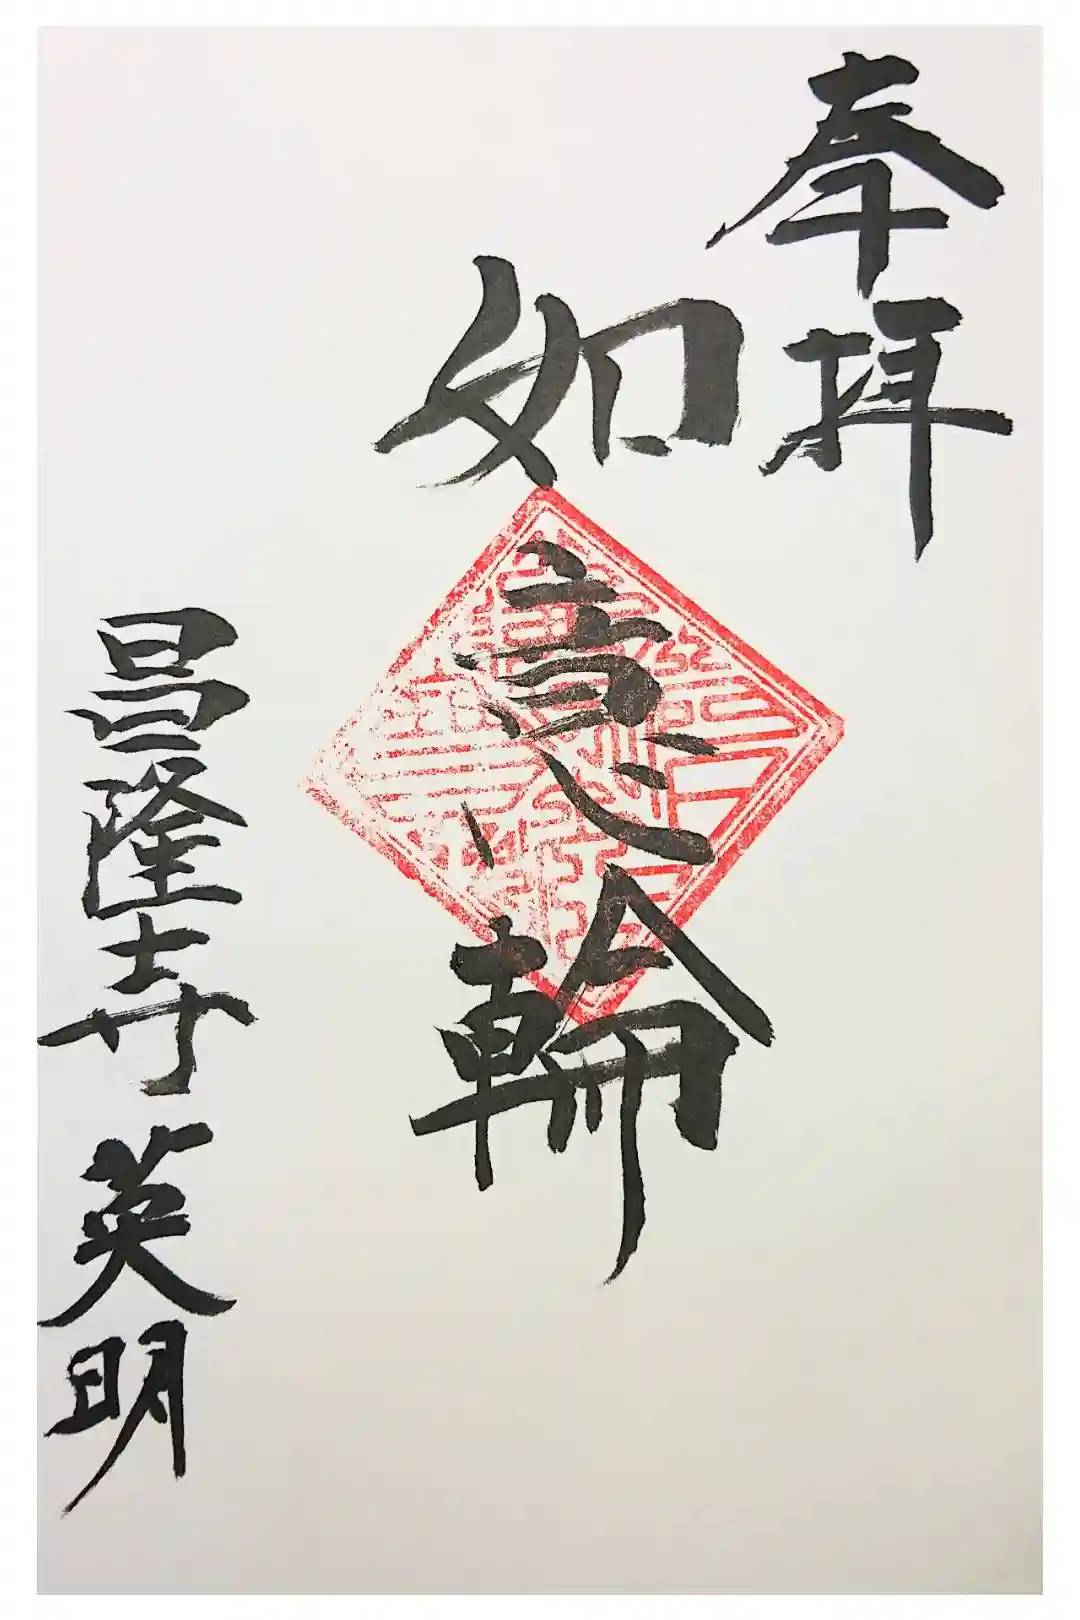 奉拝
如意輪
昌隆寺
英明